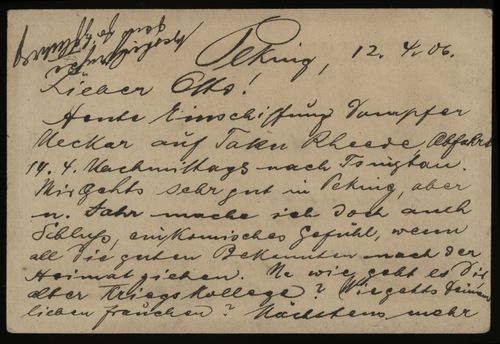 Peking, 12. 4. 06.
Lieber Otto!
Heute Einschiffung Dampfer
Neckar auf Taku Rheede Abfahrt
14. 4. Nachmittags nach Tsingtau.
Mir gehts sehr gut in Peking, aber
n. Jahr mache ich doch auch
Schluß, ein komisches Gefühl, wenn
all die guten Bekannten nach der
Heimat ziehen. Na wie geht es Dir
alter Kriegskollege? Wie gehts Deinem
lieben Frauchen? Nächstens mehr